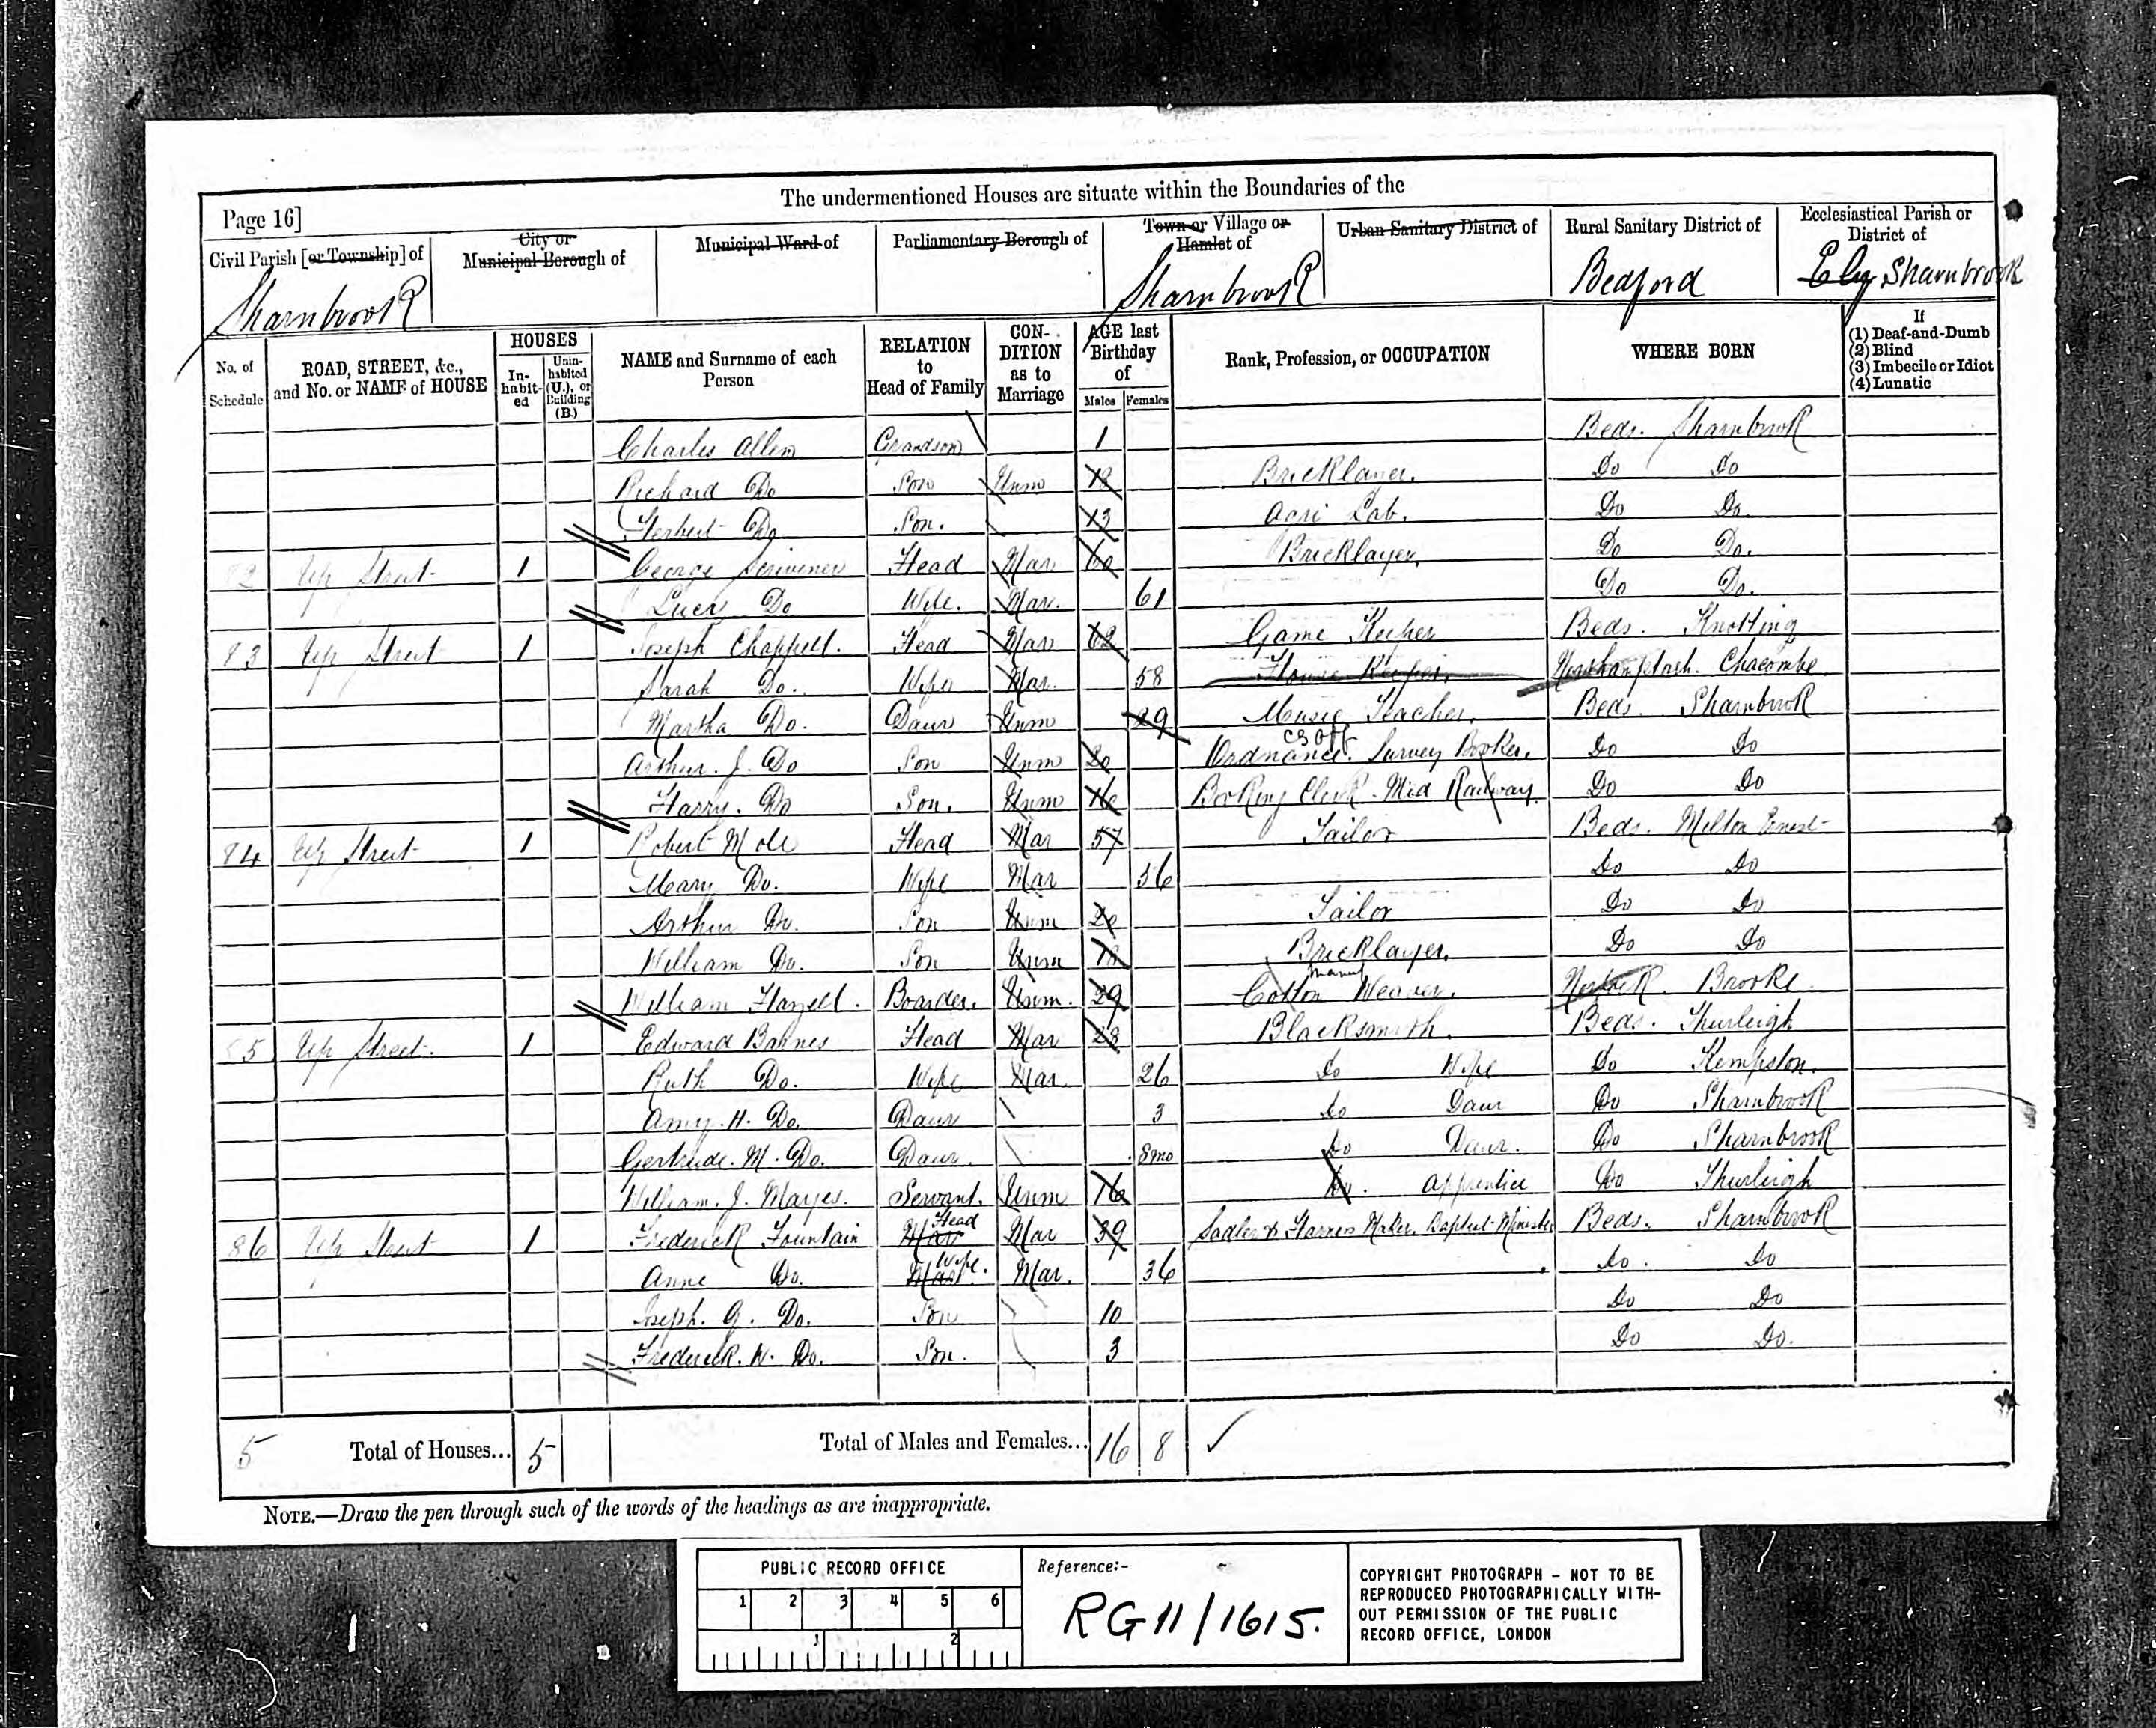 The undermentioned Houses are situate within the Boundaries of the
Page 16]
Civil Parish [or Township] of
City or Municipal Borough of
Municipal Ward of
Parliamentary Borough of
Town or Village or Hamlet of
Urban Sanitary District of
Rural Sanitary District of
Ecclesiastical Parish or District of
Sharnbrook Sharnbrook Bedford Ely Sharnbrook
No. of Schedule
ROAD, STREET, &c., and No. or NAME of HOUSE
HOUSES
In-habit-ed
Unin-habited (U.), or Building (B.)
NAME and Surname of each Person
RELATION to Head of Family
CON-DITION as to Marriage
AGE last Birthday of
Males Females
Rank, Profession, or OCCUPATION
WHERE BORN
If
(1) Deaf-and-Dumb
(2) Blind
(3) Imbecile or Idiot
(4) Lunatic
Charles Allen Grandson 1 Beds. Sharnbrook
Richard Do Son Unm Bricklayer. Do Do
Herbert Do Son. 13 Agri Lab. Do Do.
82 Up Street 1 George Scrivener Head Mar 60 Bricklayer. Do Do.
Lucy Do Wife. Mar. 61 Do Do.
83 Up Street 1 Joseph Chappell. Head Mar 62 Game Keeper Beds. Knotting
Sarah Do. Wife Mar. 58 House Keeper. Chacombe
Martha Do. Daur Unm 29 Music Teacher. Beds. Sharnbrook
Arthur. J. Do Son Unm 20 Ordnance. Survey Booker. Do Do
Harry. Do Son. Unm 16 Booking Clerk. Mid Railway. Do Do
84 Up Street 1 Robert Mole Head Mar 57 Tailor Beds. Milton Ernest
Mary Do. Wife Mar 56 Do Do
Arthur Do. Son Unm 20 Tailor Do Do
William Do. Son Unm 18 Bricklayer. Do Do
William Boarder. Unm. 29 Cotton Manuf Weaver. Norfolk. Brooke
85 Up Street. 1 Edward Barnes Head Mar 28 Blacksmith. Beds. Thurleigh
Ruth Do. Wife Mar. 26 Do Wife Do Kempston.
Amy. H. Do. Daur 3 Do Daur Do Sharnbrook
Gertrude. M. Do. Daur. 8mo Do Daur. Do Sharnbrook
William. J. Mayes. Servant. Unm 16 Do. Apprentice Do Thurleigh
86 Up Street 1 Frederick Fountain Mar Head Mar 39 Sadler & Harness Maker. Baptist Minister Beds. Sharnbrook
Anne Do. Mar Wife. Mar. 36 Do. Do
Joseph. G. Do. Son 10 Do Do
Frederick. W. Do. Son. 3 Do Do.
5 Total of Houses... 5 Total of Males and Females... 16 8
NOTE.—Draw the pen through such of the words of the headings as are inappropriate.
PUBLIC RECORD OFFICE
1 2 3 4 5 6
1 2
Reference:-
RG 11/1615.
COPYRIGHT PHOTOGRAPH - NOT TO BE
REPRODUCED PHOTOGRAPHICALLY WITH-
OUT PERMISSION OF THE PUBLIC
RECORD OFFICE, LONDON